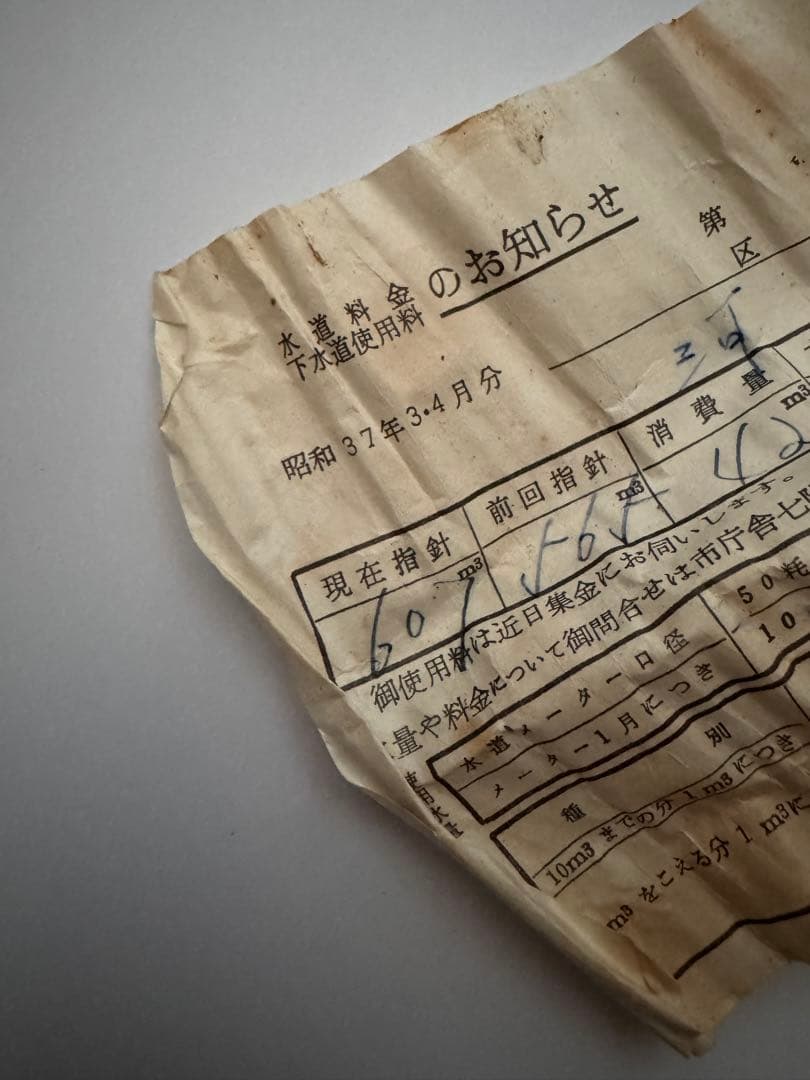 水道料金
下水道使用料
のお知らせ
第
区
昭和37年3・4月分
現在指針
前回指針
消費量
m3
m3
m3
607
565
42
御使用料は近日集金にお伺いします。
量や料金について御問合せは市庁舎七階
水道メーター口径
50粍
メーター1月につき
10
使用水量
種
別
10m3までの分1m3につき
m3をこえる分1m3に